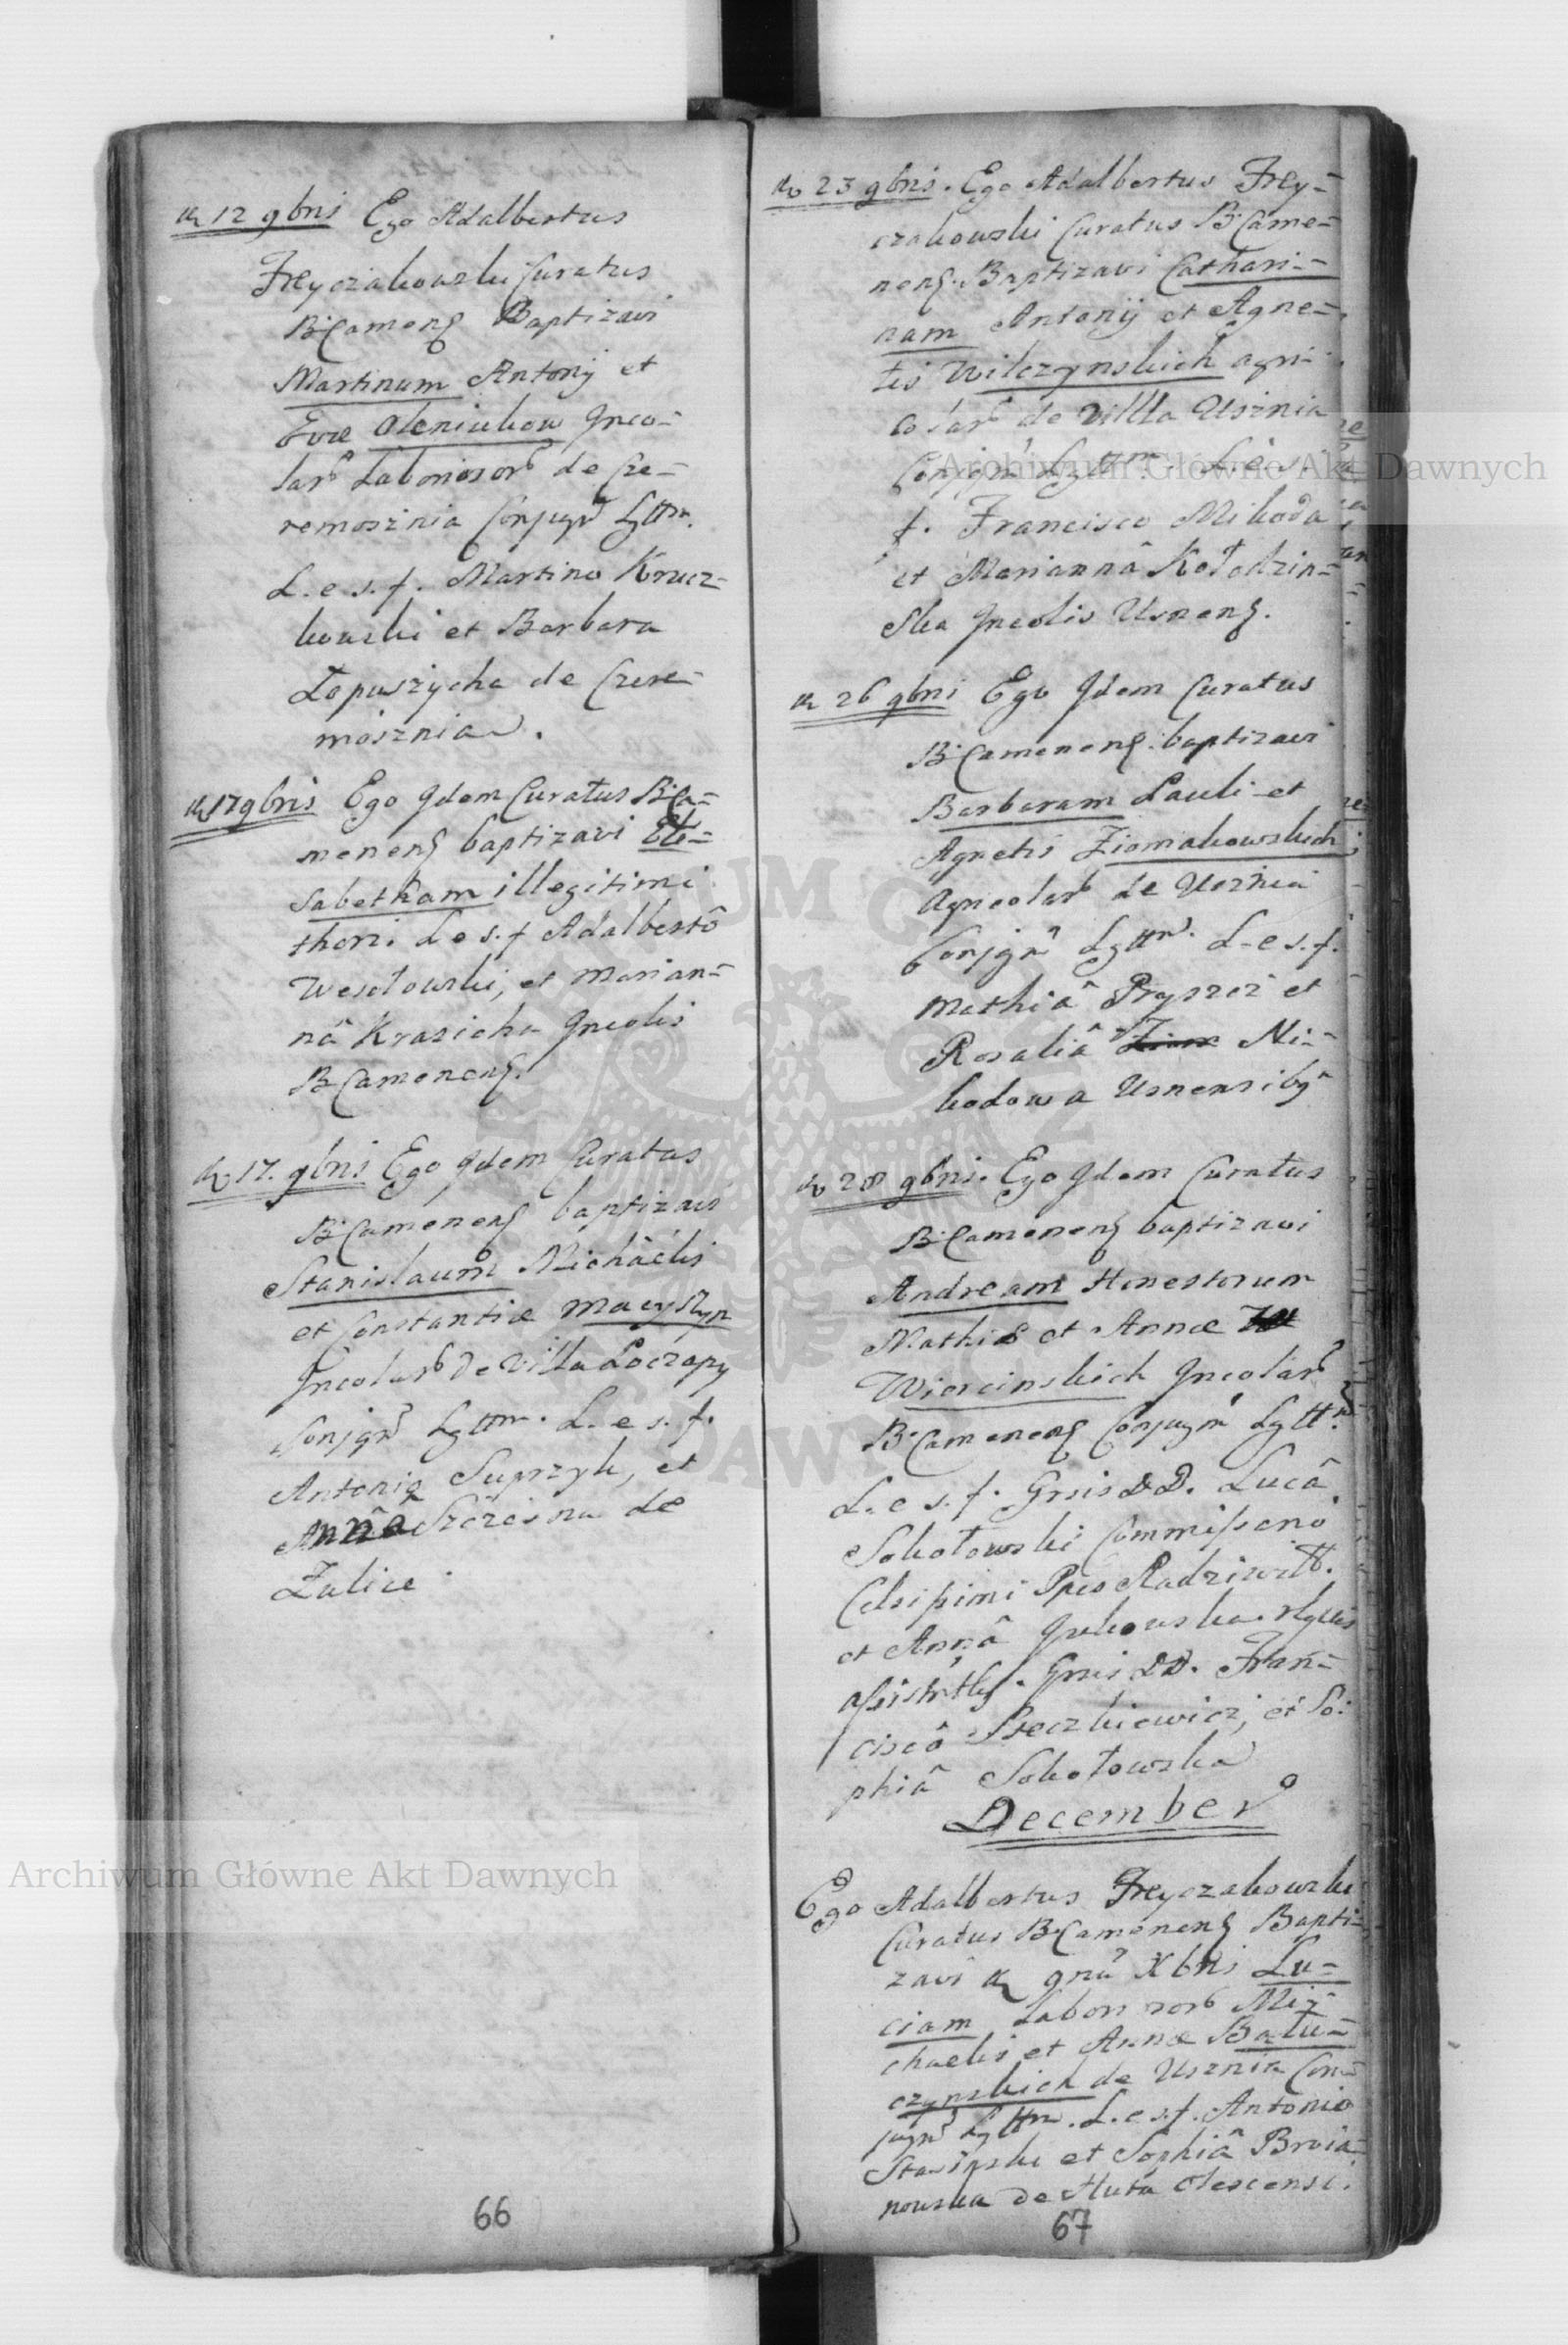 12 9bris Ego Adalbertus
Freyczakowski Curatus
B. Camenens Baptizavi
Martinum Antonij et
Evæ Oleniukow Inco=
lar Laboriosor de Cze=
remosznia Conjugu Lgttm.
L. e s. f. Martino Krucz=
kowski et Barbara
Łopuszycha de Czere=
mosznia.
17 9bris Ego Idem Curatus B. Ca=
menens baptizavi Eli=
sabetham illegitimi
thori. L e s. f Adalbertô
Wesołowski, et Marian=
nâ Krasicha Incolis
B. Camenens.
17. 9bris Ego Idem Curatus
B. Camenens baptizavi
Stanislaum Michaëlis
et Constantiæ
Incolar de Villa Loczapy
Conjgu Lgttm. L. e s. f.
Antonio Suprzyk, et
Annâ Szczesna de
Zulice.
66
23 9bris. Ego Adalbertus Frey=
czakowski Curatus B. Came=
nens. Baptizavi Cathari=
nam Antonij et Agne=
tis Wilczynskich agri=
colar de Villa Usznia
Conjgu Lgttm. L. e s.
f. Francisco Mikoda
et Mariannâ Kołodzin=
ska Incolis Usnens.
26 9bri Ego Idem Curatus
B. Camenens. baptizavi
Barbaram Pauli et
Agnetis Ziomakowskich
Agricolar de Usznia
Conjgu Lgttm. L. e s. f.
Mathiâ Pryszcz et
Rosaliâ Mi=
kodowa Usnensibg
28 9bris. Ego Idem Curatus
B. Camenens baptizavi
Andream Honestorum
Mathiæ et Annæ
Wiercinskich Incolar
B. Camenens Conjugu Lgttm.
L. e s. f. Gnsis DD. Lucâ
Sokołowski Commissario
Celsissimi Ppis Radziwiłł.
et Annâ
Gnsis DD. Fran=
ciscô et So=
phiâ Sokołowska
December
Ego Adalbertus Freyczakowski
Curatus B. Camenens Bapti=
zavi Xbris Lu=
ciam Laboriosor Mi=
chaelis et Annæ Balu=
czynskich de Usznia Con=
jugu Lgttm. L. e s. f. Antonio
et Sophiâ
de Huta Olescensi.
67
Archiwum Główne Akt Dawnych
Archiwum Główne Akt Dawnych